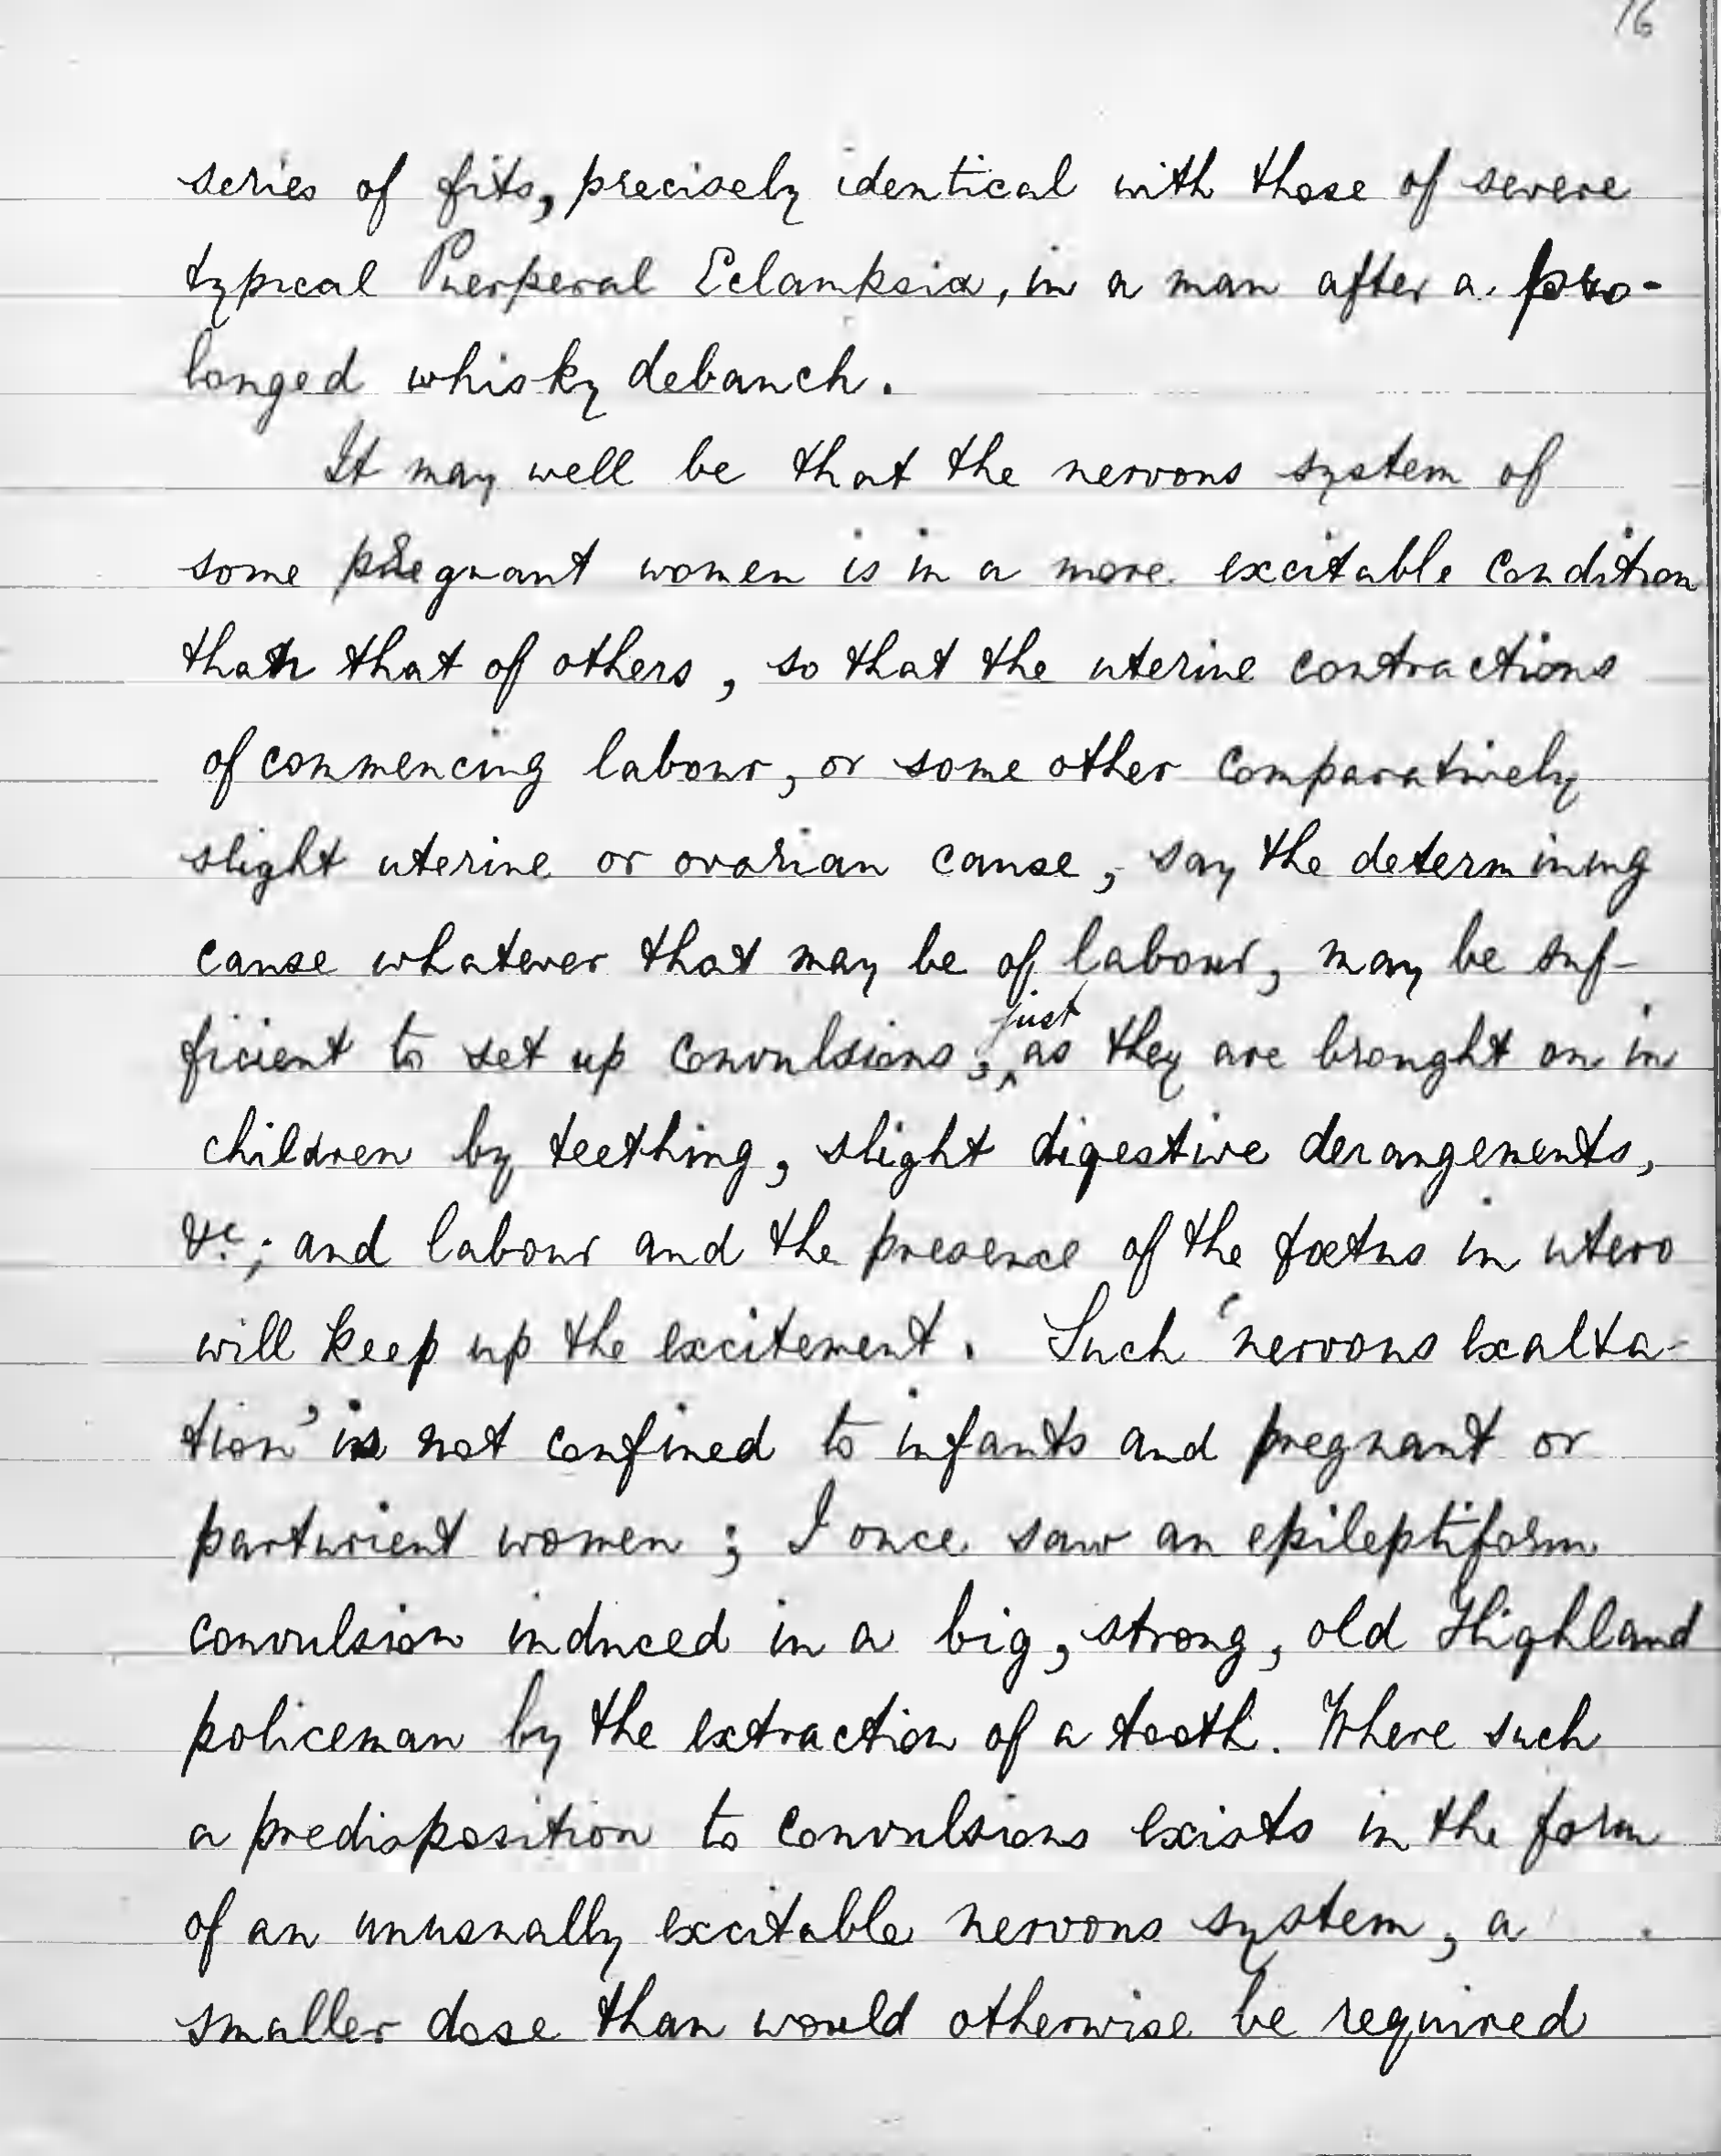 16
series of fits, precisely identical with those of severe
typical Puerperal Eclampsia, in a man after a pro-
longed whisky debauch.
It may well be that the nervous system of
some pregnant women is in a more excitable condition
than that of others, so that the uterine contractions
of commencing labour, or some other comparatively
slight uterine or ovarian cause, say the determining
cause whatever that may be of labour, may be suf-
ficient to set up convulsions, just as they are brought on in
children by teething, slight digestive derangements,
&c.; and labour and the presence of the fœtus in utero
will keep up the excitement. Such 'nervous exalta-
tion' is not confined to infants and pregnant or
parturient women; I once saw an epileptiform
convulsion induced in a big, strong, old Highland
policeman by the extraction of a tooth. Where such
a predisposition to convulsions exists in the form
of an unusually excitable nervous system, a
smaller dose than would otherwise be required